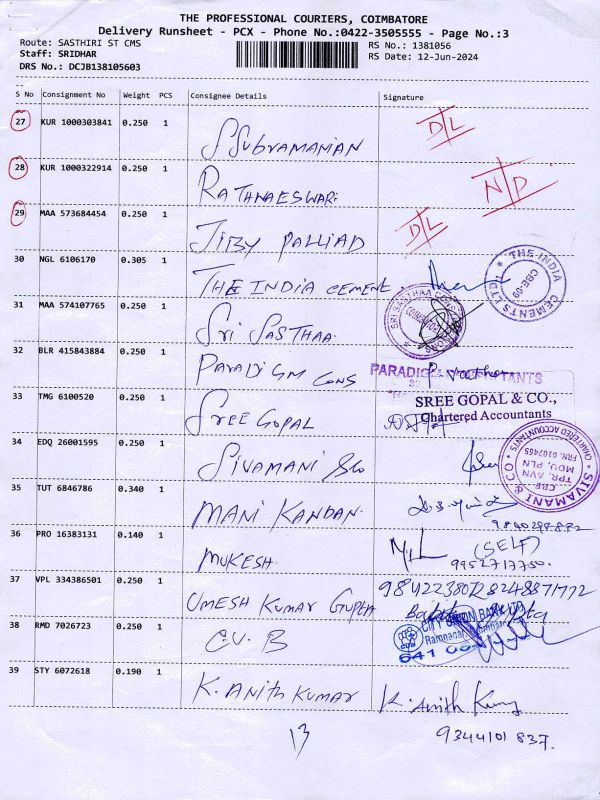 THE PROFESSIONAL COURIERS, COIMBATORE
Delivery Runsheet - PCX - Phone No.:0422-3505555 - Page No.:3
Route: SASTHIRI ST CMS RS No.: 1381056
Staff: SRIDHAR RS Date: 12-Jun-2024
DRS No.: DCJB138105603
S No Consignment No Weight PCS Consignee Details Signature
27 KUR 1000303841 0.250 1 S Subramanian D/L
28 KUR 1000322914 0.250 1 Rathnaeswari N/D
29 MAA 573684454 0.250 1 Jibby Palliad D/L
30 NGL 6106170 0.305 1 The India Cement THE INDIA CEMENTS LTD CBE-09
31 MAA 574107765 0.250 1 Sri Sasthaa SRI SASTHAA
32 BLR 415843884 0.250 1 Paradigm Cons
33 TMG 6100520 0.250 1 Sree Gopal SREE GOPAL & CO.,
Chartered Accountants
34 EDQ 26001595 0.250 1 Sivamani &Co SIVAMANI & CO CHARTERED ACCOUNTANTS
35 TUT 6846786 0.340 1 Mani Kandan
36 PRO 16383131 0.140 1 Mukesh (SELF)
9952717750
37 VPL 334386501 0.250 1 Umesh Kumar Gupta
38 RMD 7026723 0.250 1 C.U.B CITY UNION BANK LTD
39 STY 6072618 0.190 1 K. Anith Kumar K. Anith Kumar
9344101837
13